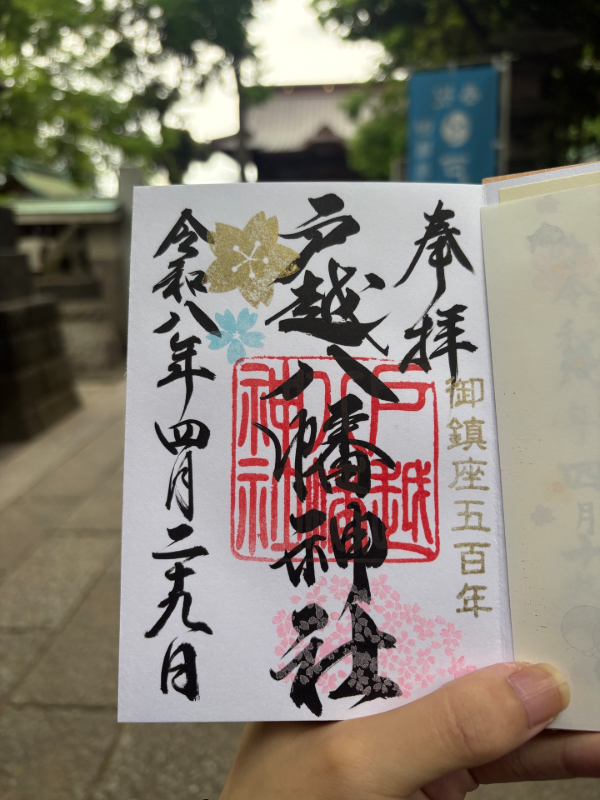 奉拝
御鎮座五百年
戸越八幡神社
戸越八幡神社
令和八年四月二十九日